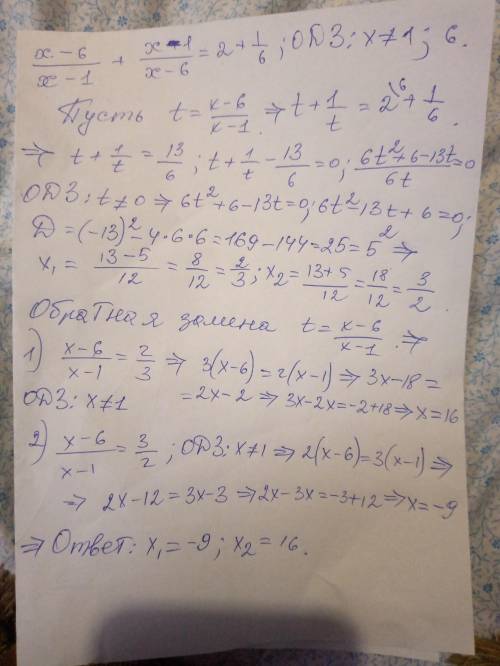 (x-6)/(x-1) + (x-1)/(x-6) = 2 + 1/6 ; ОДЗ: x≠1; 6.
Пусть t = (x-6)/(x-1). ⇒ t + 1/t = 2\6 + 1/6.
⇒ t + 1/t = 13/6 ; t + 1/t - 13/6 = 0; (6t²+6-13t)/6t = 0
ОДЗ: t≠0 ⇒ 6t²+6-13t=0; 6t²-13t+6=0;
Д = (-13)²-4•6•6=169-144=25=5² ⇒
x₁ = (13-5)/12 = 8/12 = 2/3 ; x₂ = (13+5)/12 = 18/12 = 3/2.
Обратная замена t = (x-6)/(x-1). ⇒
1) (x-6)/(x-1) = 2/3 ⇒ 3(x-6)=2(x-1) ⇒ 3x-18=
ОДЗ: x≠1 =2x-2 ⇒ 3x-2x=-2+18 ⇒ x=16
2) (x-6)/(x-1) = 3/2 ; ОДЗ: x≠1 ⇒ 2(x-6)=3(x-1) ⇒
⇒ 2x-12=3x-3 ⇒ 2x-3x=-3+12 ⇒ x=-9
⇒ Ответ: x₁=-9; x₂=16.